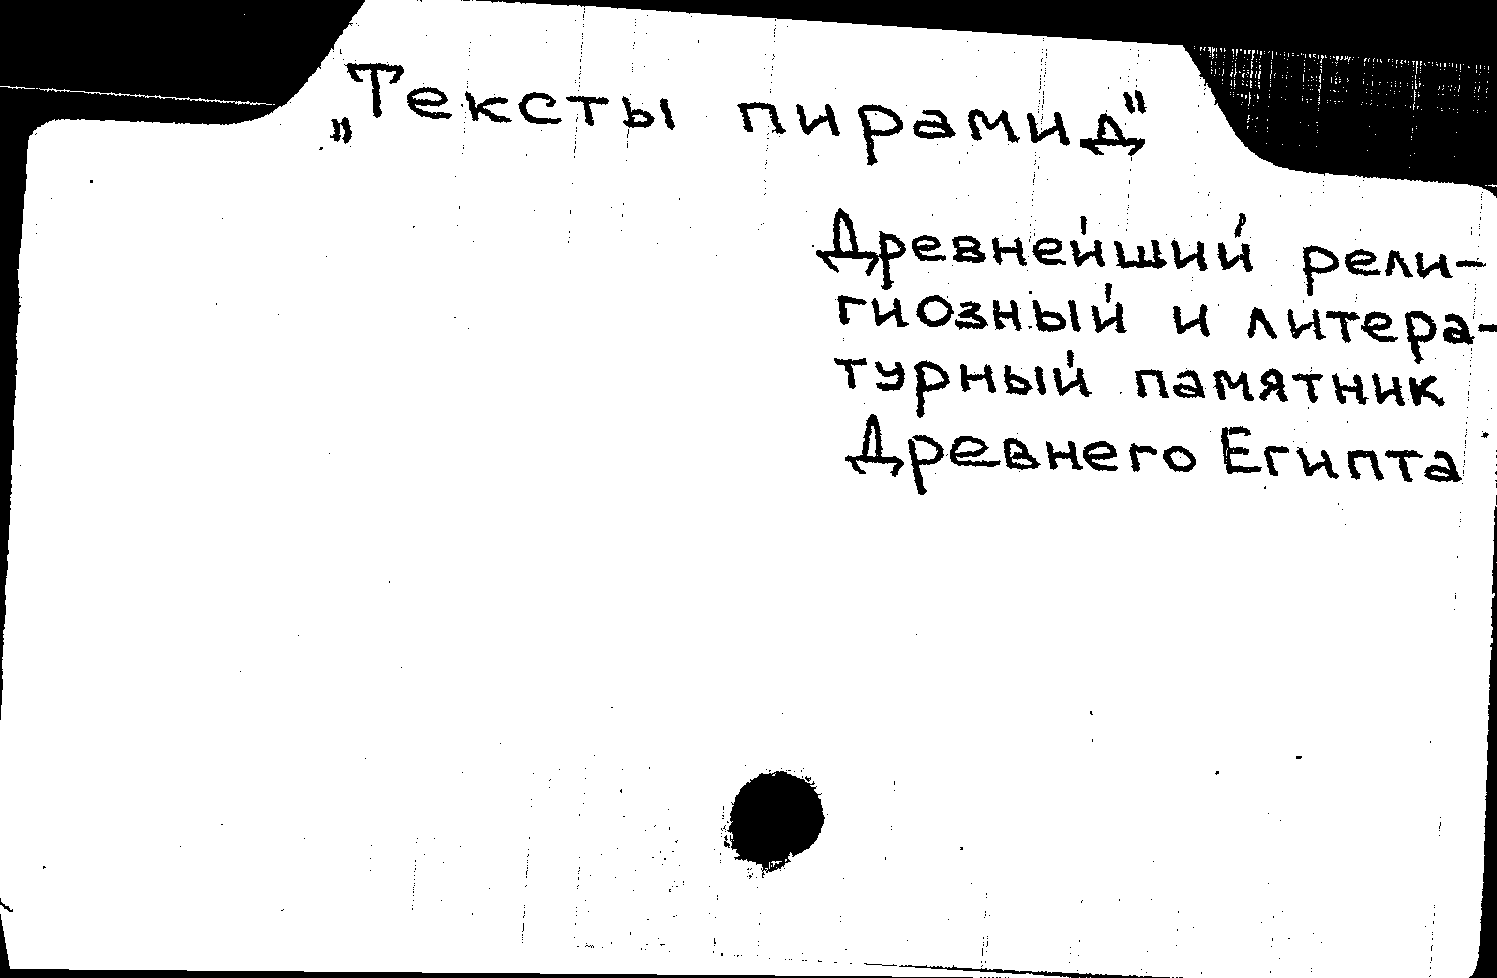 „Тексты пирамид"
Древнейший рели-
гиозный и литера-
турный памятник
Древнего Египта